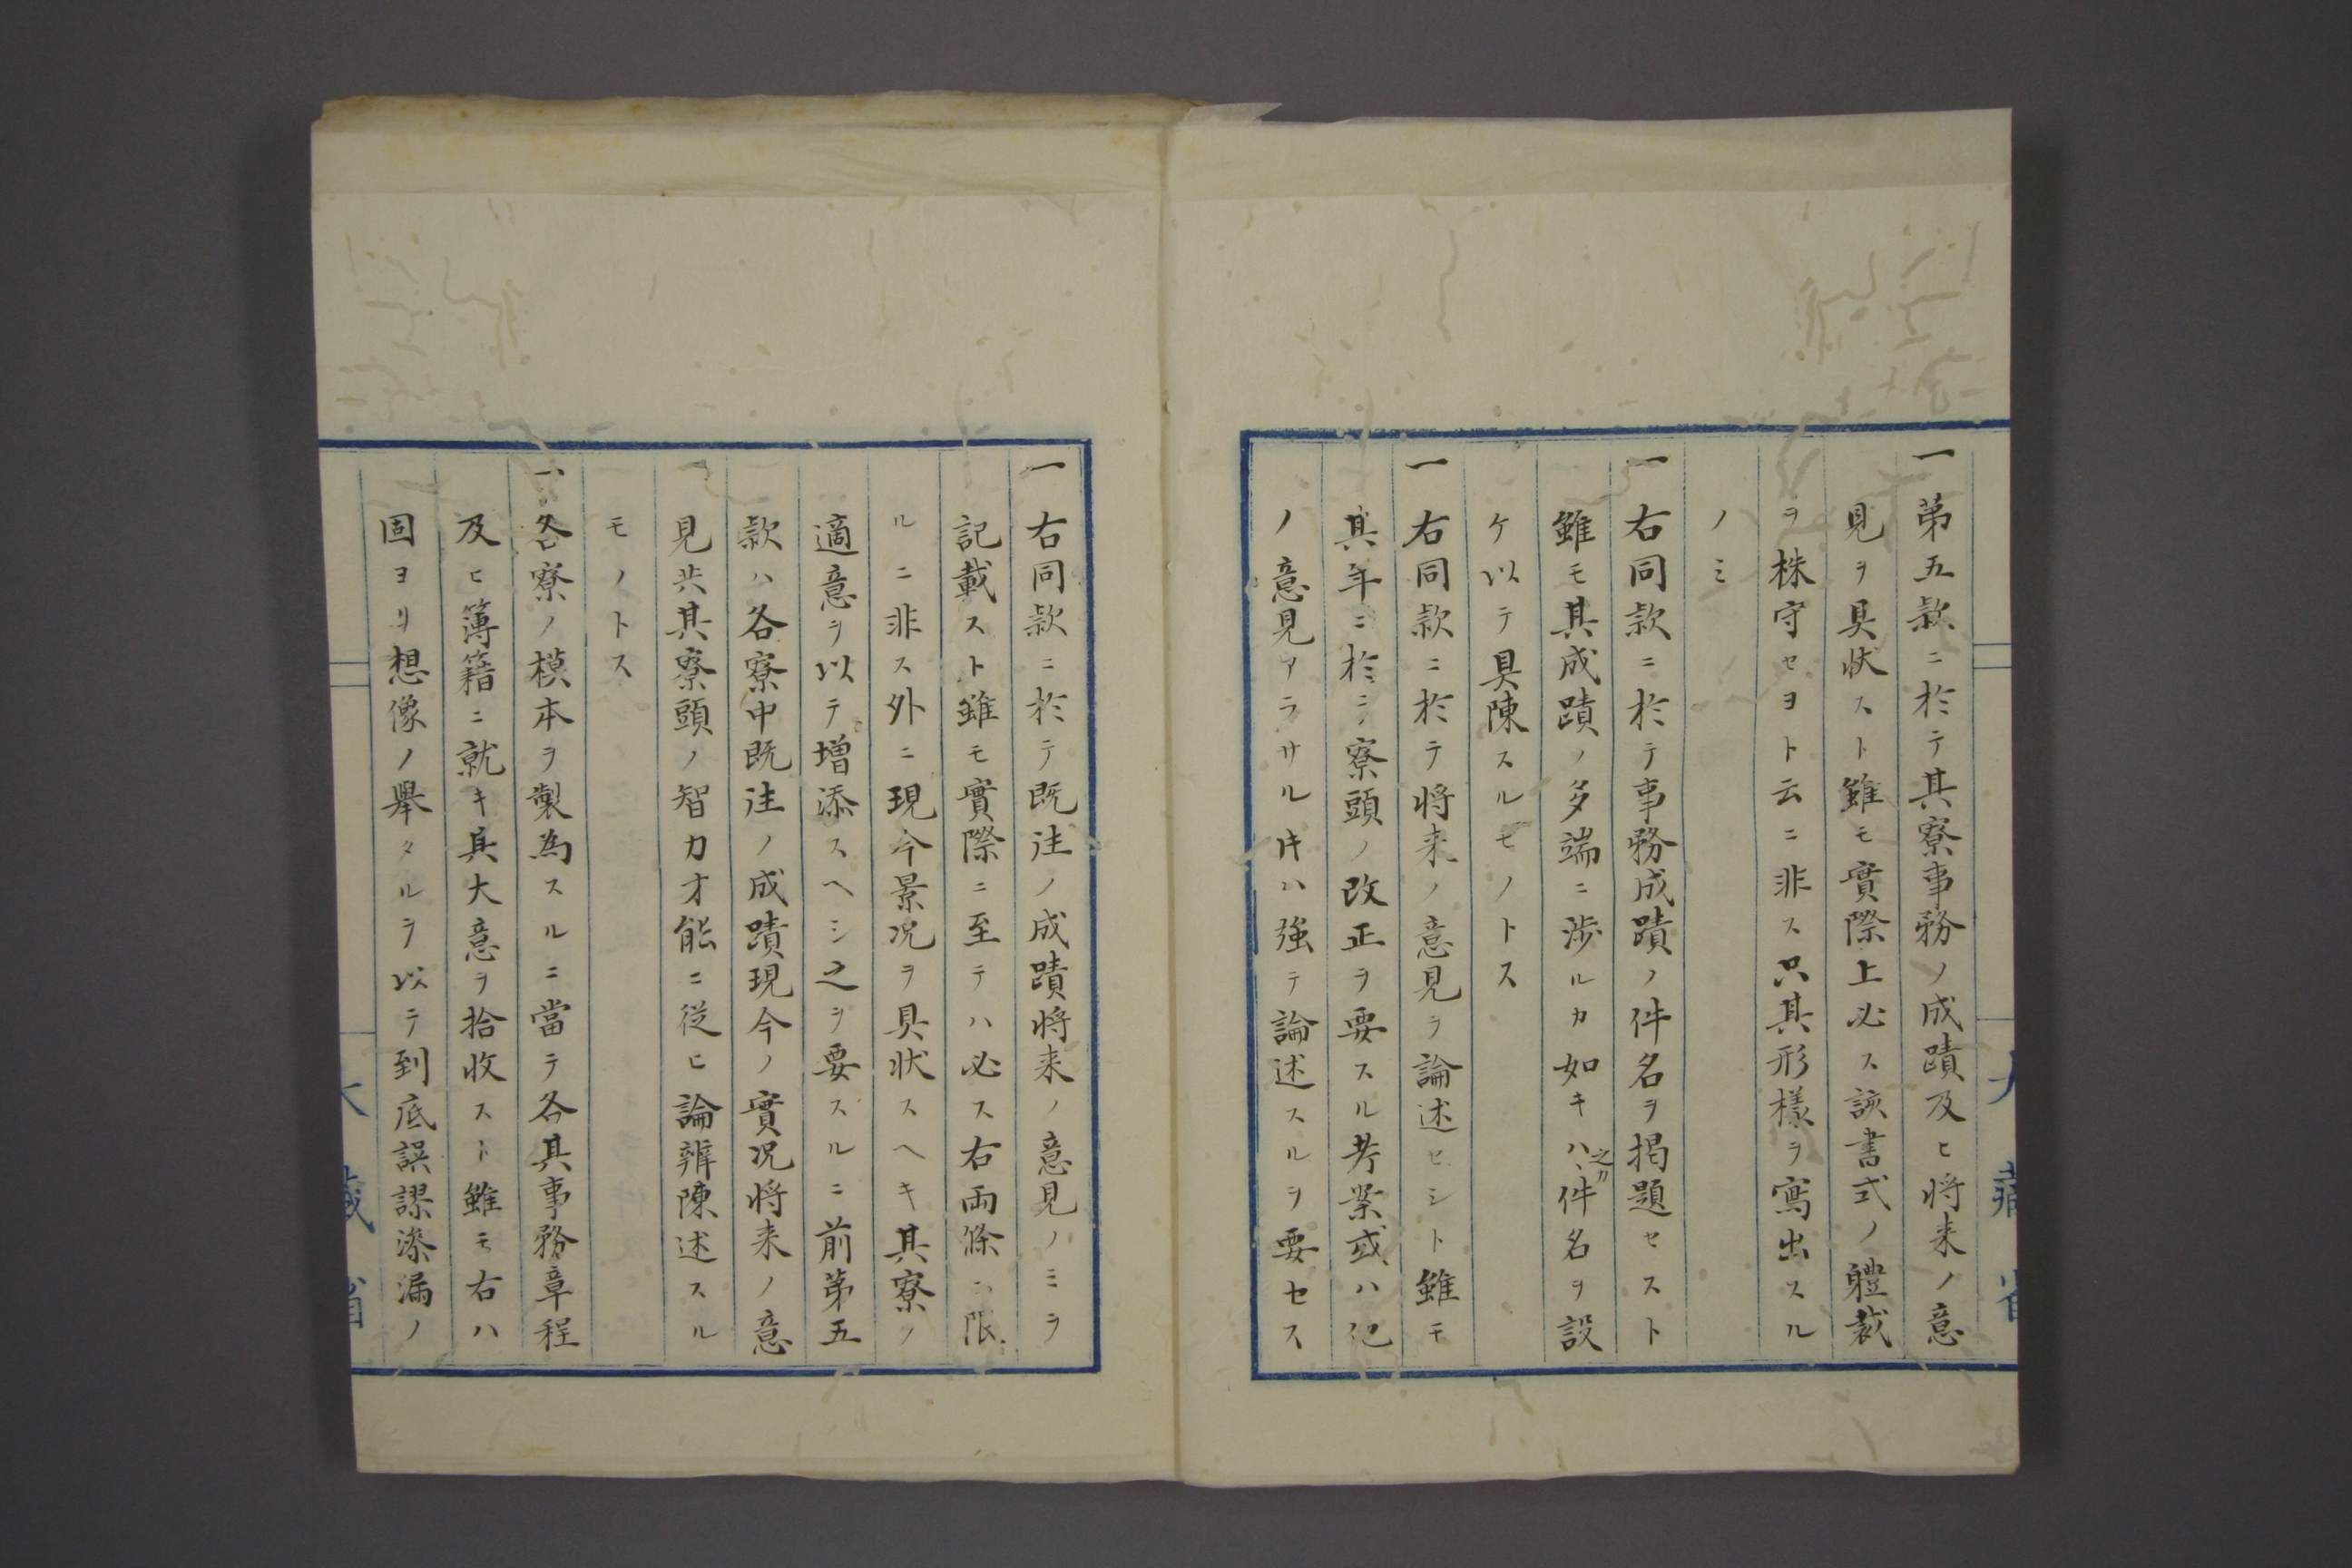 一第五款ニ於テ其寮事務ノ成蹟及ヒ将来ノ意
見ヲ具状スト雖モ實際上必ス該書式ノ軆裁
ヲ株守セヨト云ニ非ス只其形樣ヲ寫出スル
ノミ
一右同款ニ於テ事務成蹟ノ件名ヲ掲題セスト
雖モ其成蹟ノ多端ニ渉ルカ如キハ之カ件名ヲ設
ケ以テ具陳スルモノトス
一右同款ニ於テ将来ノ意見ヲ論述セシト雖モ
其年ニ於テ寮頭ノ改正ヲ要スル考案或ハ
ノ意見アラサル𪜈ハ強テ論述スルヲ要セス
大藏省
一右同款ニ於テ既往ノ成蹟将来ノ意見ノミヲ
記載スト雖モ實際ニ至テハ必ス右兩條ニ限
ルニ非ス外ニ現今景况ヲ具状スヘキ其寮ノ
適意ヲ以テ増添スヘシ之ヲ要スルニ前第五
款ハ各寮中既往ノ成蹟現今ノ實况将来ノ意
見共其寮頭ノ智力才能ニ従ヒ論辨陳述スル
モノトス
一各寮ノ模本ヲ製為スルニ當テ各其事務章程
及ヒ簿籍ニ就キ其大意ヲ拾收スト雖モ右ハ
固ヨリ想像ノ舉タルヲ以テ到底誤謬滲漏ノ
大藏省